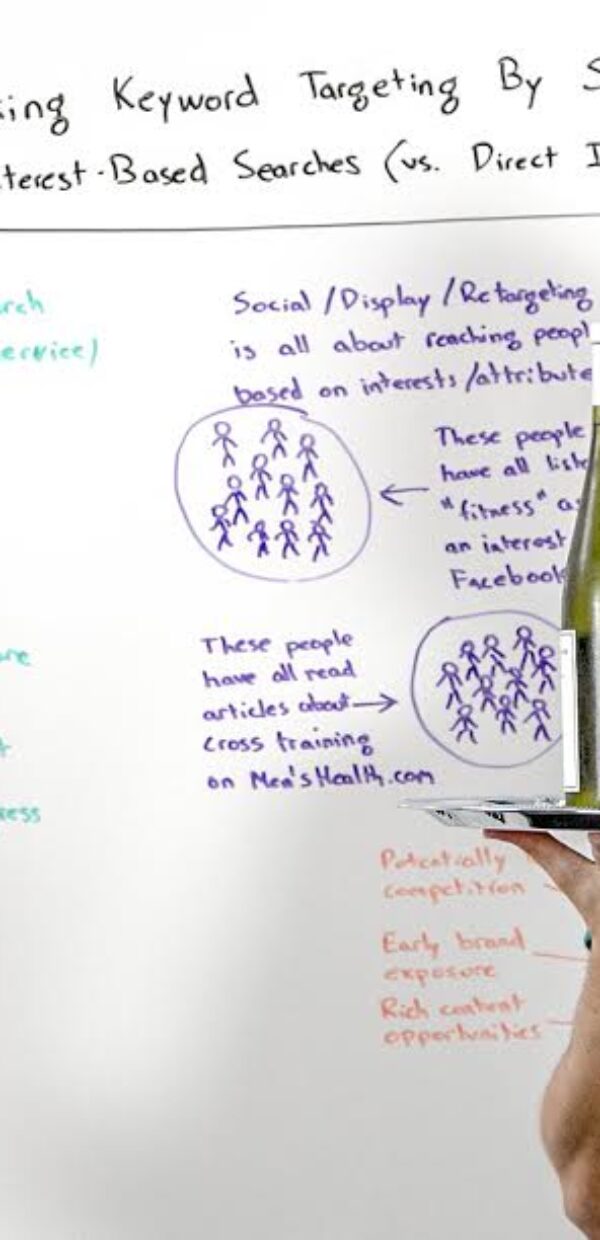 ing Keyword Targeting By S
terest-Based Searches (vs. Direct I
rch
ervice)
Social/Display/Retargeting
is all about reaching peopl
based on interests/attribute
These people
have all liste
"fitness" as
an interest
Facebook
These people
have all read
articles about
cross training
on Men'sHealth.com
ess
Potentially
competition
Early brand
exposure
Rich content
opportunities